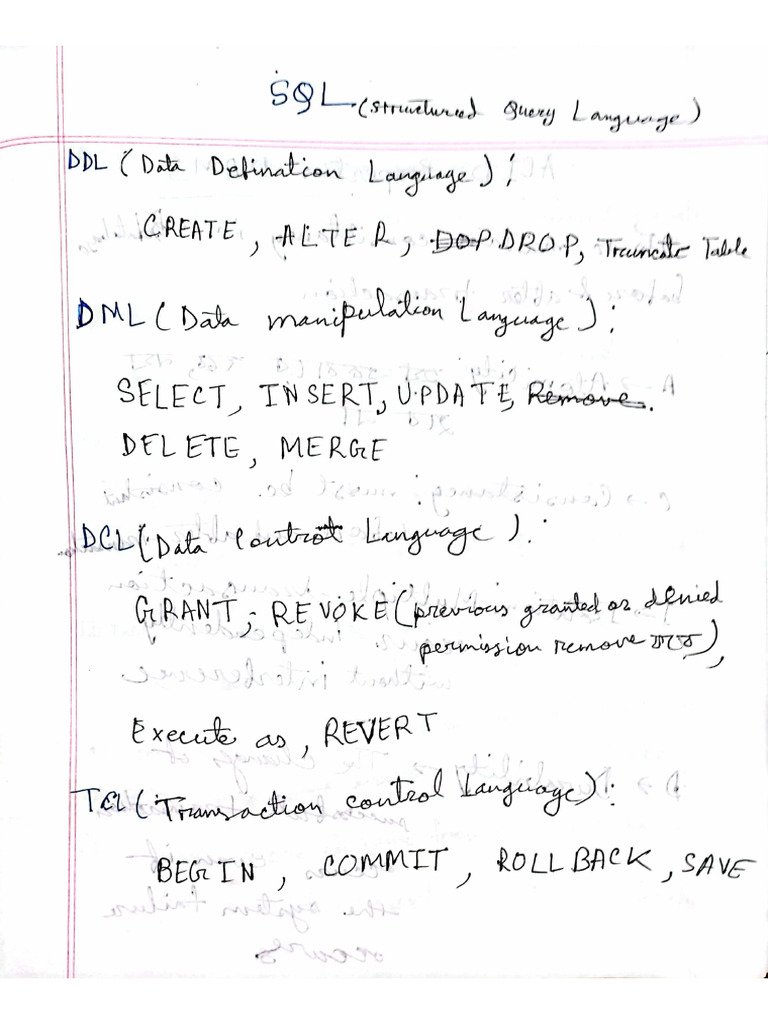 SQL (Structured Query Language)
DDL (Data Defination Language):
CREATE, ALTER, DOP DROP, Truncate Table
DML (Data manipulation Language):
SELECT, INSERT, UPDATE, Remove.
DELETE, MERGE
DCL (Data Control Language):
GRANT, REVOKE (previous granted or denied
permission remove করে),
Execute as, REVERT
TCL (Transaction control Language):
BEGIN, COMMIT, ROLLBACK, SAVE